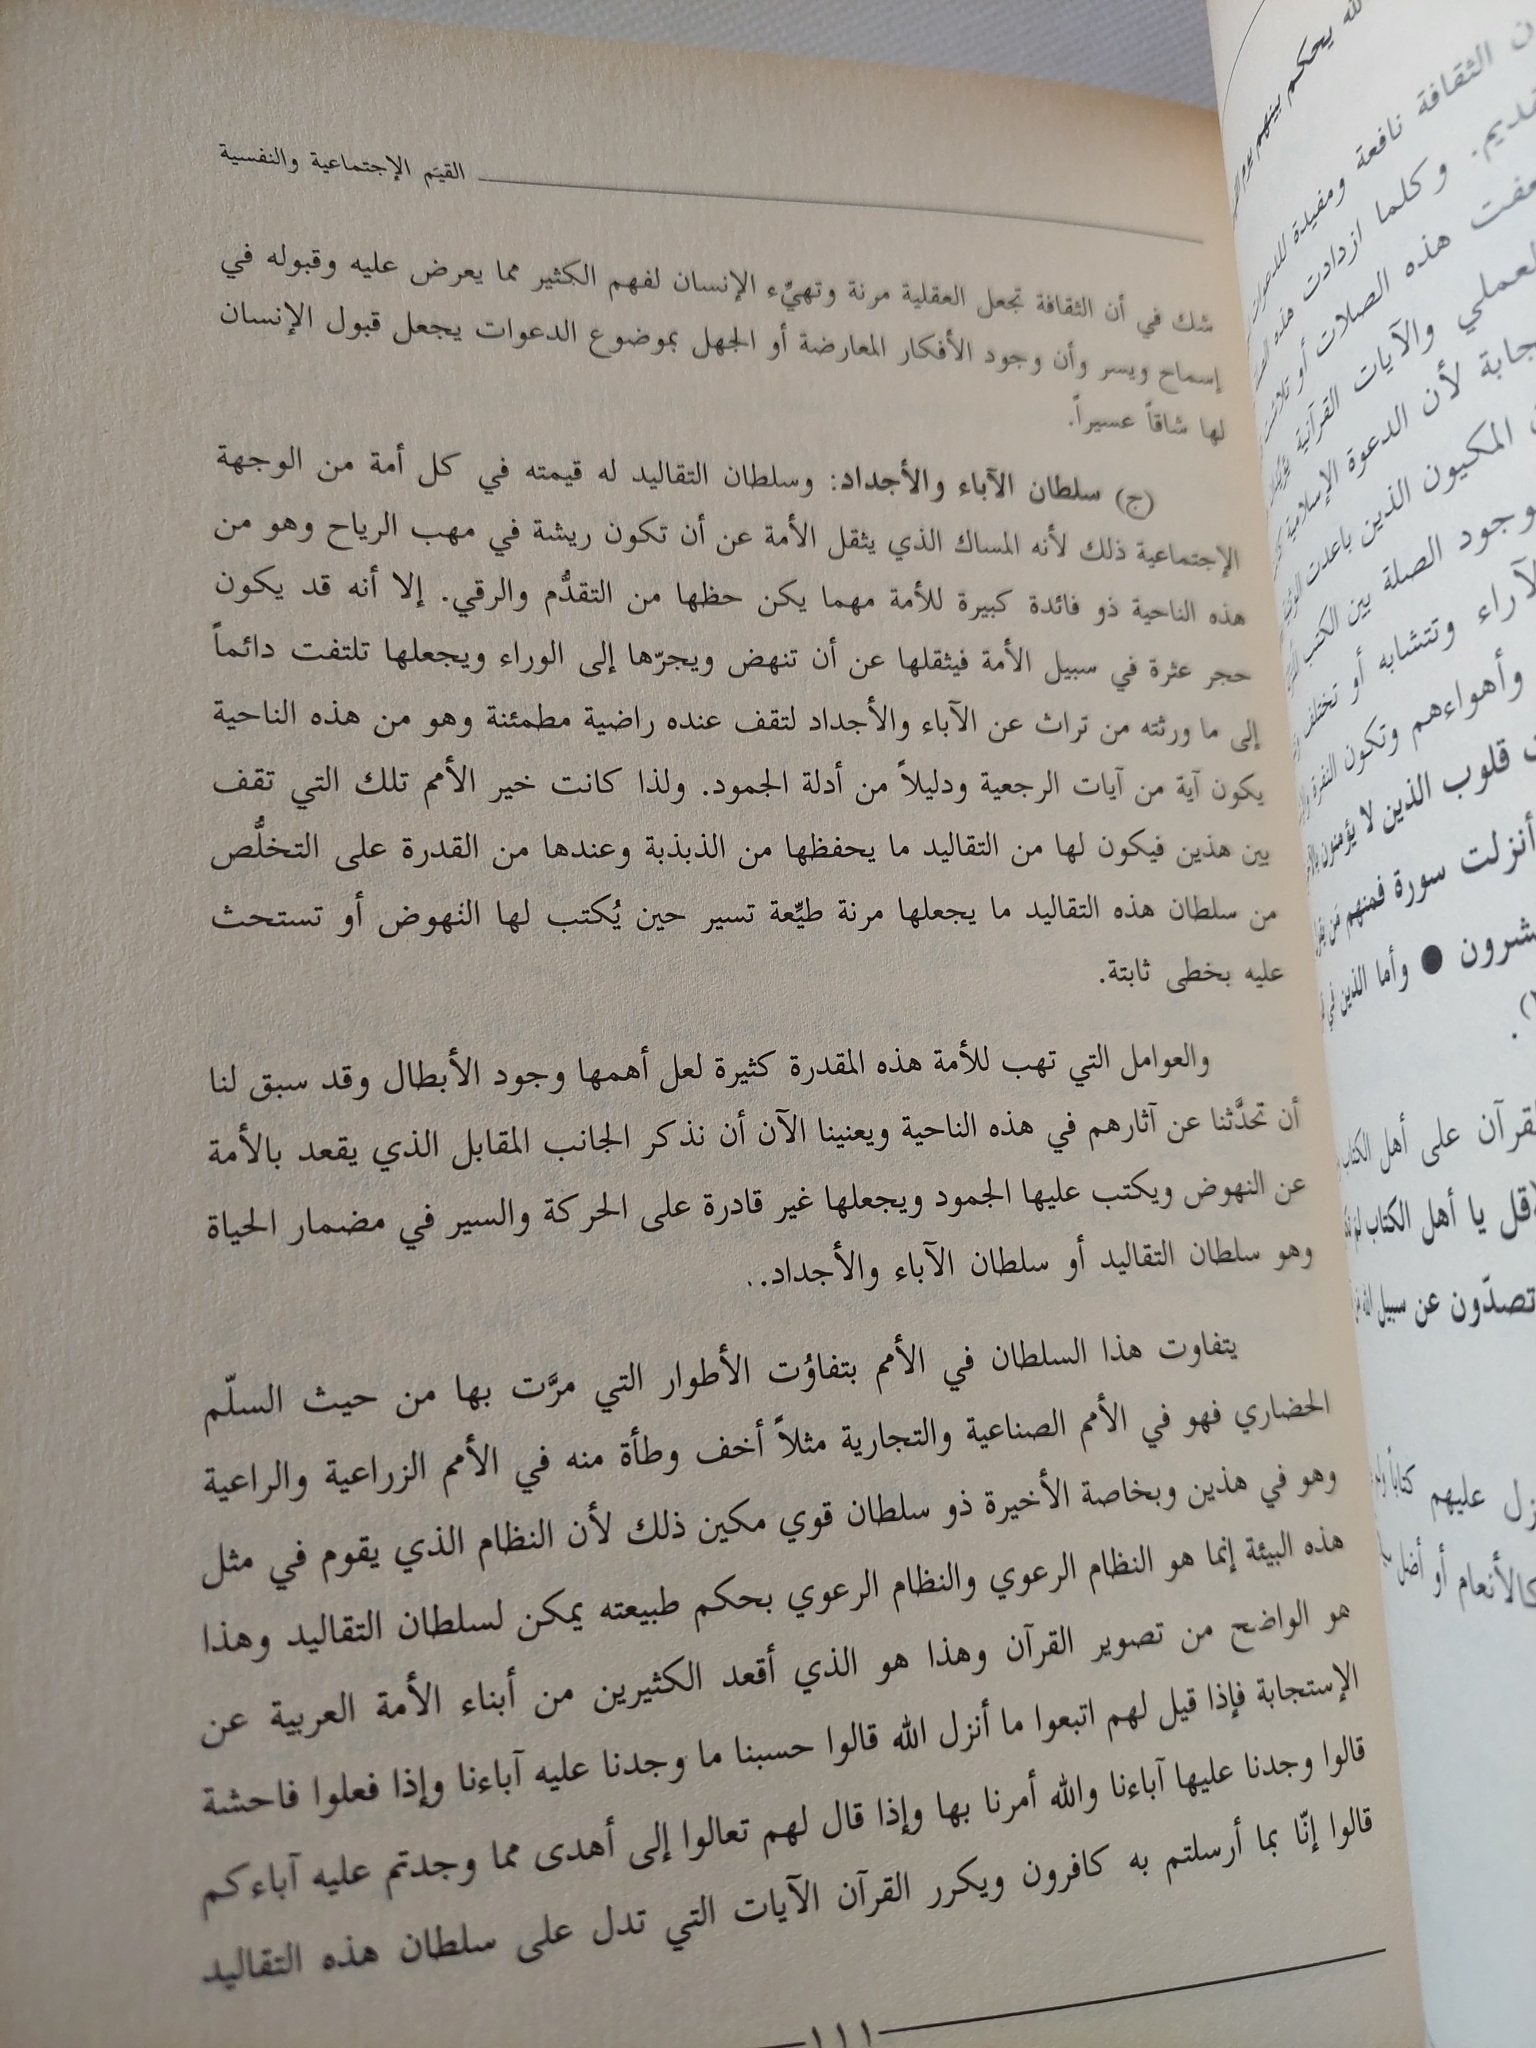 القيَم الإجتماعية والنفسية
شك في أن الثقافة تجعل العقلية مرنة وتهيِّء الإنسان لفهم الكثير مما يعرض عليه وقبوله في
إسماح ويسر وأن وجود الأفكار المعارضة أو الجهل بموضوع الدعوات يجعل قبول الإنسان
لها شاقاً عسيراً.
(ج) سلطان الآباء والأجداد: وسلطان التقاليد له قيمته في كل أمة من الوجهة
الإجتماعية ذلك لأنه المساك الذي يثقل الأمة عن أن تكون ريشة في مهب الرياح وهو من
هذه الناحية ذو فائدة كبيرة للأمة مهما يكن حظها من التقدُّم والرقي. إلا أنه قد يكون
حجر عثرة في سبيل الأمة فيثقلها عن أن تنهض ويجرّها إلى الوراء ويجعلها تلتفت دائماً
إلى ما ورثته من تراث عن الآباء والأجداد لتقف عنده راضية مطمئنة وهو من هذه الناحية
يكون آية من آيات الرجعية ودليلاً من أدلة الجمود. ولذا كانت خير الأمم تلك التي تقف
بين هذين فيكون لها من التقاليد ما يحفظها من الذبذبة وعندها من القدرة على التخلُّص
من سلطان هذه التقاليد ما يجعلها مرنة طيِّعة تسير حين يُكتب لها النهوض أو تستحث
عليه بخطى ثابتة.
والعوامل التي تهب للأمة هذه المقدرة كثيرة لعل أهمها وجود الأبطال وقد سبق لنا
أن تحدَّثنا عن آثارهم في هذه الناحية ويعنينا الآن أن نذكر الجانب المقابل الذي يقعد بالأمة
عن النهوض ويكتب عليها الجمود ويجعلها غير قادرة على الحركة والسير في مضمار الحياة
وهو سلطان التقاليد أو سلطان الآباء والأجداد..
يتفاوت هذا السلطان في الأمم بتفاوُت الأطوار التي مرَّت بها من حيث السلّم
الحضاري فهو في الأمم الصناعية والتجارية مثلاً أخف وطأة منه في الأمم الزراعية والراعية
وهو في هذين وبخاصة الأخيرة ذو سلطان قوي مكين ذلك لأن النظام الذي يقوم في مثل
هذه البيئة إنما هو النظام الرعوي والنظام الرعوي بحكم طبيعته يمكن لسلطان التقاليد وهذا
هو الواضح من تصوير القرآن وهذا هو الذي أقعد الكثيرين من أبناء الأمة العربية عن
الإستجابة فإذا قيل لهم اتبعوا ما أنزل الله قالوا حسبنا ما وجدنا عليه آباءنا وإذا فعلوا فاحشة
قالوا وجدنا عليها آباءنا والله أمرنا بها وإذا قال لهم تعالوا إلى أهدى مما وجدتم عليه آباءكم
قالوا إنّا بما أرسلتم به كافرون ويكرر القرآن الآيات التي تدل على سلطان هذه التقاليد
١١١
يحكم بينهم
ن الثقافة نافعة ومفيدة للدعوات
وكلما ازدادت هذه
هذه الصلات أو
العملي والآيات القرآنية
لأن الدعوة الإسلامية
المكيون الذين باعدت
وجود الصلة بين الكتب
وتتشابه أو تختلف
وأهواءهم وتكون النفرة
قلوب الذين لا يؤمنون
أنزلت سورة فمنهم من
● وأما الذين في
على أهل الكتاب
يا أهل الكتاب لم
تصدّون عن سبيل الله
عليهم كتاباً
كالأنعام أو أضل